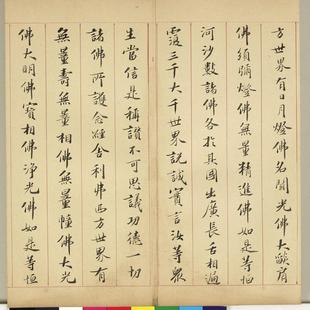 方世界有日月燈佛名聞光佛大㷿肩
佛須彌燈佛無量精進佛如是等恒
河沙數諸佛各於其國出廣長舌相遍
覆三千大千世界說誠實言汝等眾
生當信是稱讚不可思議功德一切
諸佛所護念經舍利弗西方世界有
無量壽佛無量相佛無量幢佛大光
佛大明佛寶相佛淨光佛如是等恒